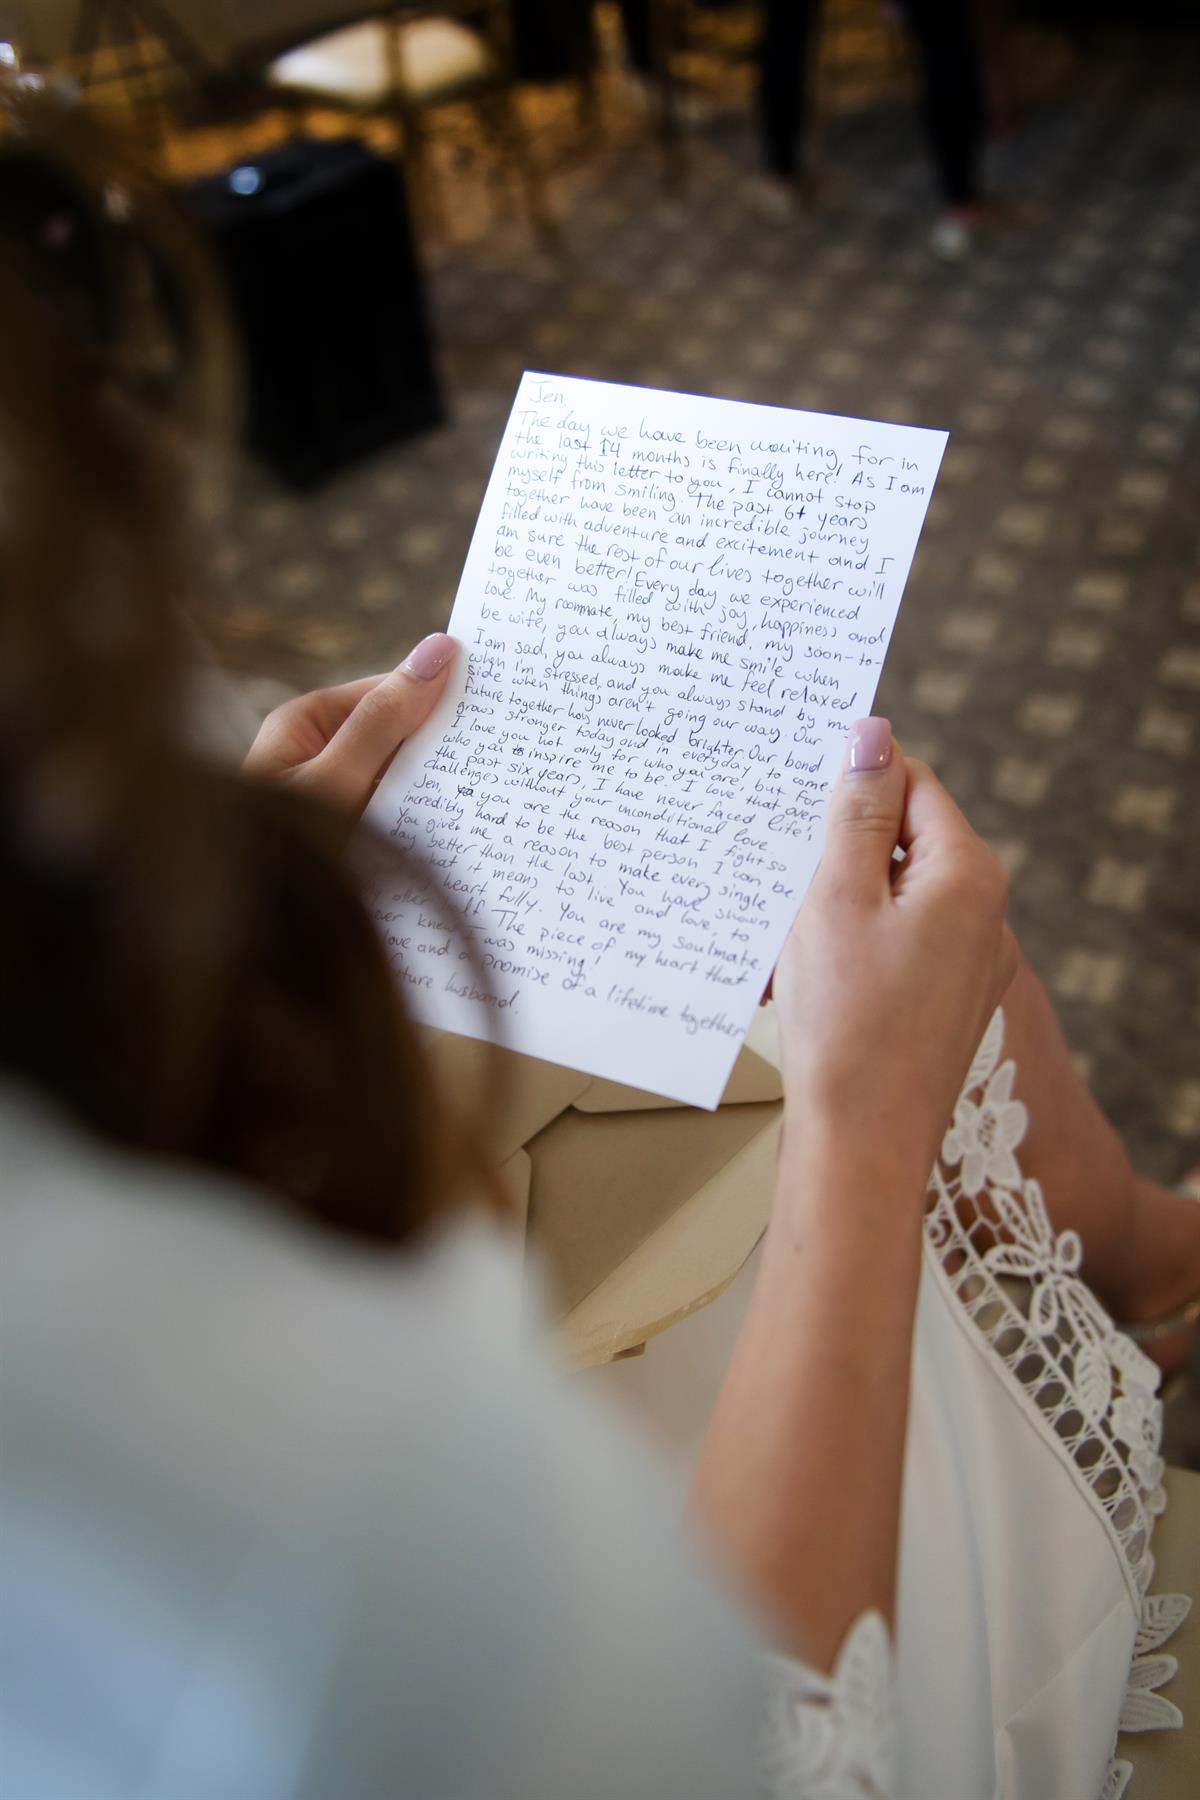 Jen,
The day we have been waiting for in
the last 14 months is finally here! As I am
writing this letter to you, I cannot stop
myself from smiling. The past 6+ years
together have been an incredible journey
filled with adventure and excitement and I
am sure the rest of our lives together will
be even better! Every day we experienced
together was filled with joy, happiness and
love. My roommate, my best friend, my soon-to-
be wife, you always make me smile when
I am sad, you always make me feel relaxed
when I'm stressed, and you always stand by my
side when things aren't going our way. Our
future together has never looked brighter. Our bond
grows stronger today and in everyday to come.
I love you not only for who you are, but for
who you inspire me to be. I love that over
the past six years, I have never faced life's
challenges without your unconditional love.
Jen, you are the reason that I fight so
incredibly hard to be the best person I can be.
You give me a reason to make every single
day better than the last. You have shown
what it means to live and love, to
heart fully. You are my soulmate.
other half. The piece of my heart that
knew I was missing!
love and a promise of a lifetime together
future husband.